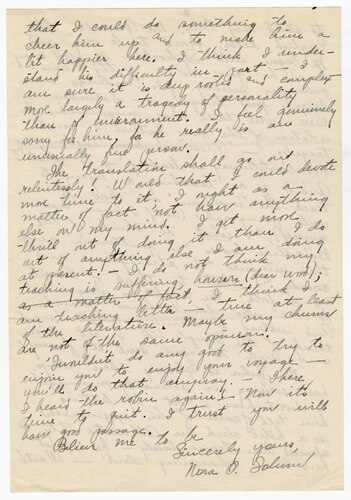 that I could do something to
cheer him up and to make him a
bit happier here. I think I under-
stand his difficulty in part – I
am sure it is deep rooted and complex
more largely a tragedy of personality
than of environment. I feel genuinely
sorry for him, for he really is an
unusually fine person.
The translation shall go on
relentlessly! Would that I could devote
more time to it; I might as a
matter of fact, not have anything
else on my mind. I get more
thrill out of doing it than I do
out of anything else I am doing
at present. – I do not think my
teaching is suffering however (dear me);
as a matter of fact, I think I
am teaching better – true at least
of the literature. Maybe my chums
are not of the same opinion.
'Twouldn't do any good to try to
enjoin you to enjoy your voyage –
you'll do that anyway. – There,
I heard the robin again! Now it's
time to quit. I trust you will
have good passage.
Believe me to be
Sincerely yours,
Nora O.